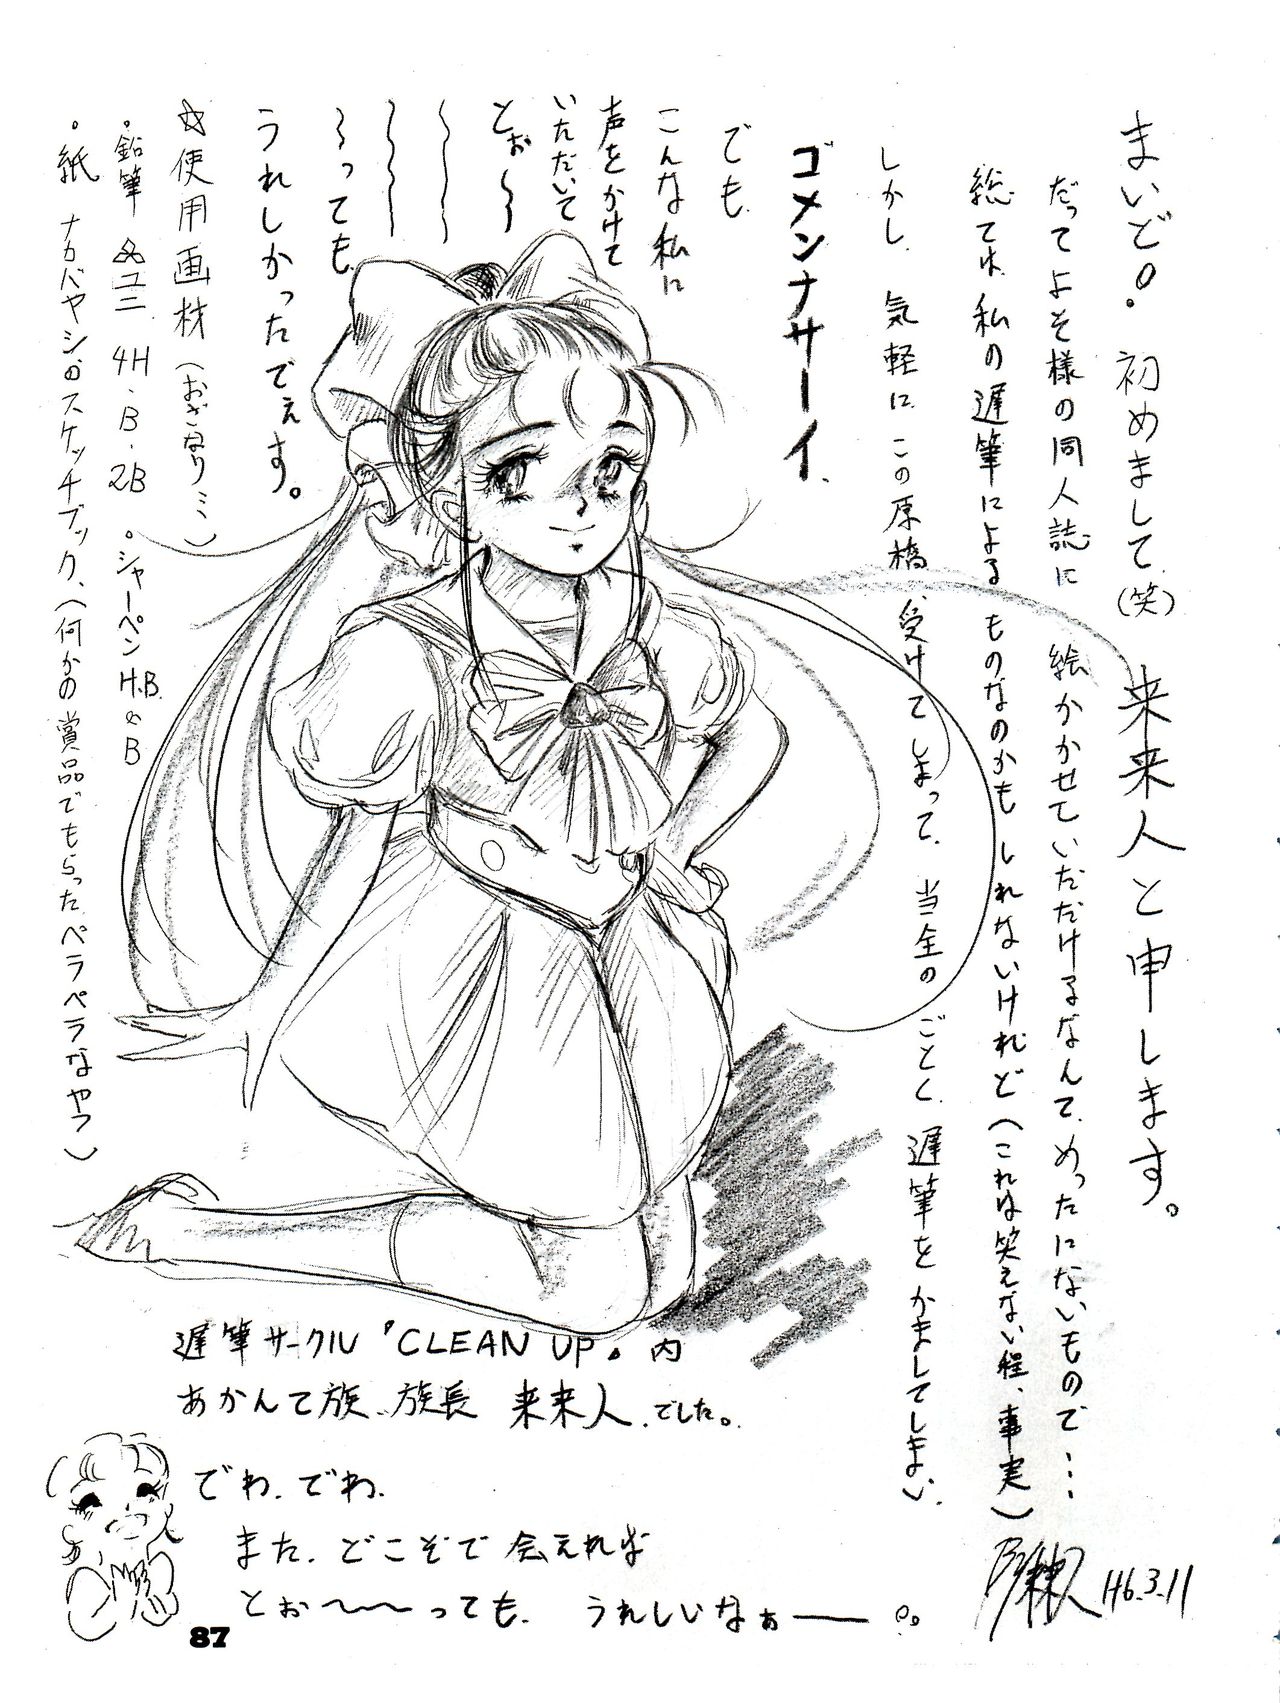 まいど。初めまして(笑) 来来人と申します。
だってよそ様の同人誌に 絵かかせていただけるなんて、めったにないもので……
総ては、私の遅筆によるものなのかもしれないけれど(これは笑えない程、事実)
しかし、気軽に、この原稿、受けてしまって、当全のごとく、遅筆をかましてしまい、
ゴメンナサーイ、
でも、
こんな私に
声をかけて
いただいて
とぉ〜
〜
〜
〜っても、
うれしかったでぇす。
☆使用画材(おざなり…)
。鉛筆 ユニ 4H・B・2B 。シャーペン H.B.とB
。紙 ナカバヤシのスケッチブック、(何かの賞品でもらった、ペラペラなやつ)
遅筆サークル『CLEAN UP』内
あかんて族、族長 来来人、でした。
でわ、でわ、
また、どこぞで会えれば
とぉ〜〜〜っても、うれしいなぁー——。
H6.3.11
87